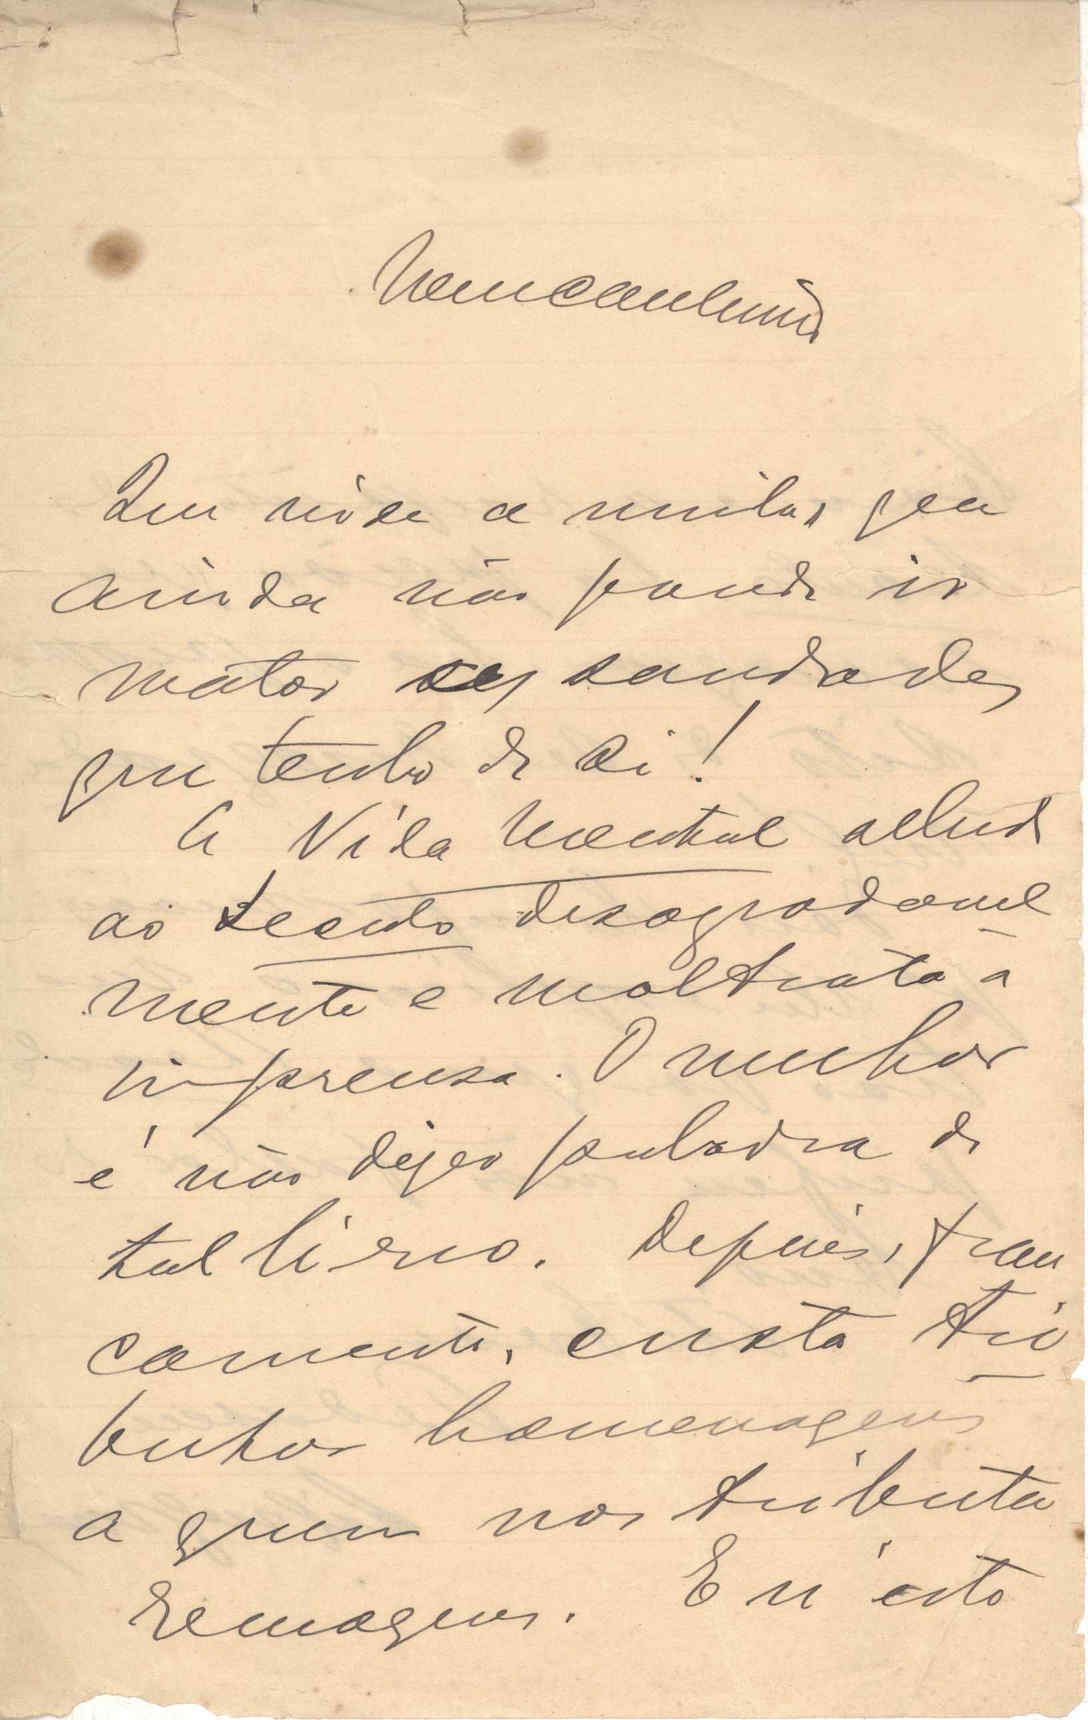 Que vida a minha, que
ainda não poude ir
matar as saudades
que tenho de si!
A Vida Mental allude
ao Seculo desagradavel
mente e maltrata a
imprensa. O melhor
é não dizer palavra de
tal livro. Depois, fran
camente, custa tri
butar homenagens
a quem nos tributa
E n'esta